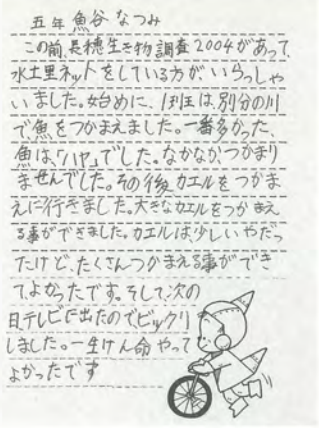 五年 魚谷 なつみ
この前、長穂生き物調査2004があって、
水土里ネットをしている方が、いらっしゃ
いました。始めに、1班は、別分の川
で魚をつかまえました。一番多かった、
魚は、「ハヤ」でした。なかなか、つかまり
ませんでした。その後、カエルをつかま
えに行きました。大きなカエルをつかまえ
る事ができました。カエルは、少しいやだっ
たけど、たくさんつかまえる事ができ
てよかったです。そして、次の
日、テレビに出たのでビックリ
しました。一生けん命やって
よかったです